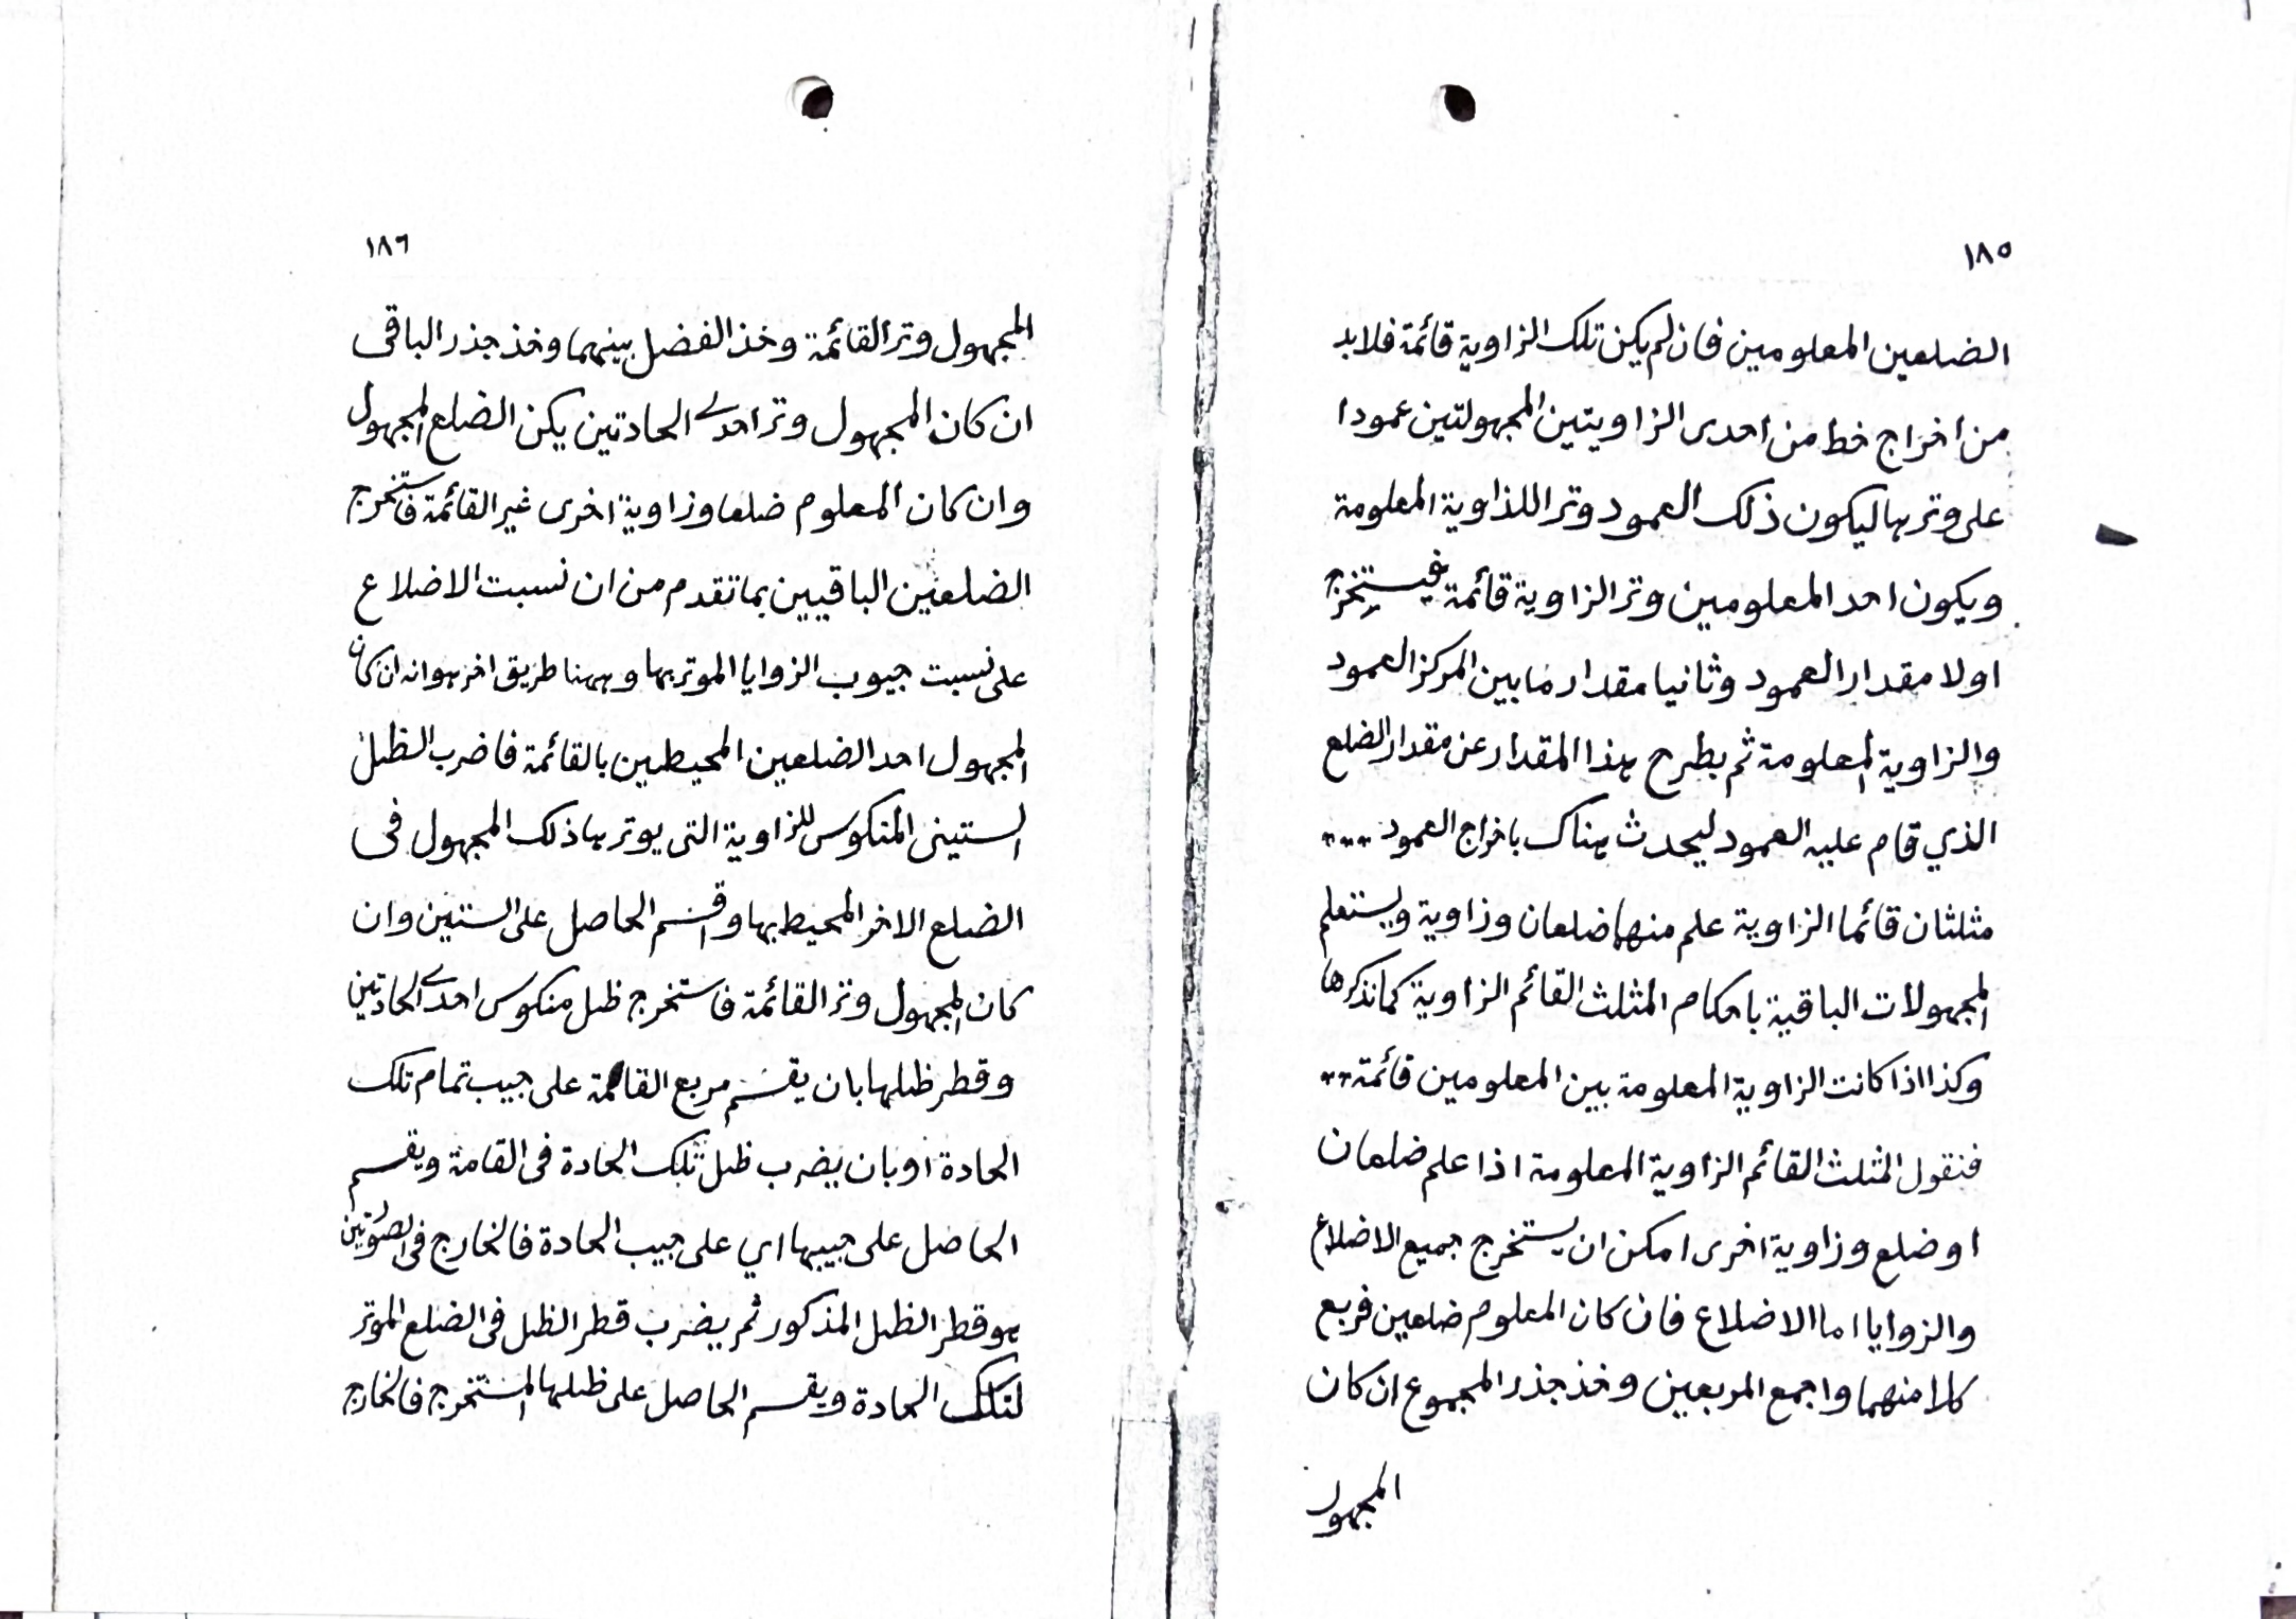 ١٨٥
الضلعين المعلومين فان لم يكن تلك الزاوية قائمة فلابد
من اخراج خط من احدى الزاويتين المجهولتين عمودا
على وترها ليكون ذلك العمود وتر اللذاوية المعلومة
ويكون احد المعلومين وتر الزاوية قائمة فيستخرج
اولا مقدار العمود وثانيا مقدار ما بين المركز العمود
والزاوية المعلومة ثم بطرح هذا المقدار عن مقدار الضلع
الذي قام عليه العمود ليحدث هناك باخراج العمود
مثلثان قائما الزاوية علم منهما ضلعان وزاوية ويستعلم
المجهولات الباقية باحكام المثلث القائم الزاوية كما نذكرها
وكذا اذا كانت الزاوية المعلومة بين المعلومين قائمة
فنقول المثلث القائم الزاوية المعلومة اذا علم ضلعان
او ضلع وزاوية اخرى امكن ان يستخرج جميع الاضلاع
والزوايا اما الاضلاع فان كان المعلوم ضلعين فربع
كلا منهما واجمع المربعين وخذ جذر المجموع ان كان
المجهول
١٨٦
المجهول وتر القائمة وخذ الفضل بينهما وخذ جذر الباقى
ان كان المجهول وتر احدى الحادتين يكن الضلع المجهول
وان كان المعلوم ضلعا وزاوية اخرى غير القائمة فاستخرج
الضلعين الباقيين بما تقدم من ان نسبت الاضلاع
على نسبت جيوب الزوايا الموتر بها وههنا طريق اخر هو انه ان كان
المجهول احد الضلعين المحيطين بالقائمة فاضرب الظل
الستينى المنكوس للزاوية التى يوتر بها ذلك المجهول فى
الضلع الاخر المحيط بها واقسم الحاصل على الستين وان
كان المجهول وتر القائمة فاستخرج ظل منكوس احدى الحادتين
وقطر ظلها بان يقسم مربع القامة على جيب تمام تلك
الحادة او بان يضرب ظل تلك الحادة فى القامة ويقسم
الحاصل على جيبها اي على جيب الحادة فالخارج فى الصورتين
هو قطر الظل المذكور ثم يضرب قطر الظل فى الضلع الموتر
لتلك الحادة ويقسم الحاصل على ظلها المستخرج فالخارج